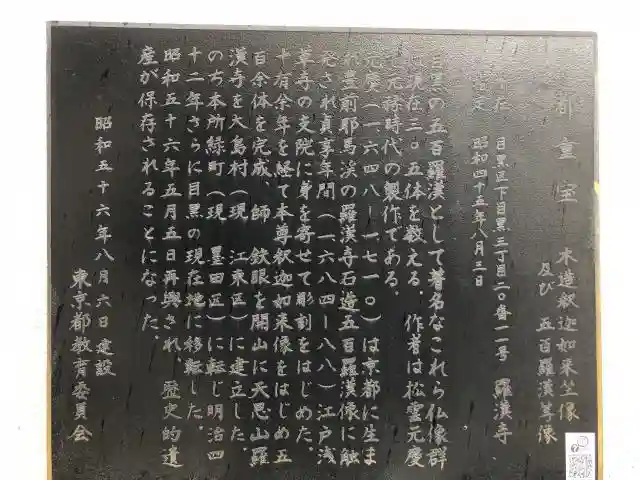 都重宝 木造釈迦如来坐像
及び五百羅漢等像
所在 目黒区下目黒三丁目二〇番一一号 羅漢寺
指定 昭和四十五年八月三日
目黒の五百羅漢として著名なこれら仏像群
は現在三〇五体を数える。作者は松雲元慶
で元禄時代の製作である。
元慶(一六四八ー一七一〇)は京都に生ま
れ豊前耶馬渓の羅漢寺石造五百羅漢像に触
発され貞享年間(一六八四ー八八)江戸浅
草寺の支院に身を寄せて彫刻をはじめた。
十有余年を経て本尊釈迦如来像をはじめ五
百余体を完成、師 鉄眼を開山に天恩山羅
漢寺を大島村(現 江東区)に建立した。
のち本所緑町(現 墨田区)に転じ明治四
十二年さらに目黒の現在地に移転した。
昭和五十六年五月五日再興され 歴史的遺
産が保存されることになった。
昭和五十六年八月六日建設
東京都教育委員会